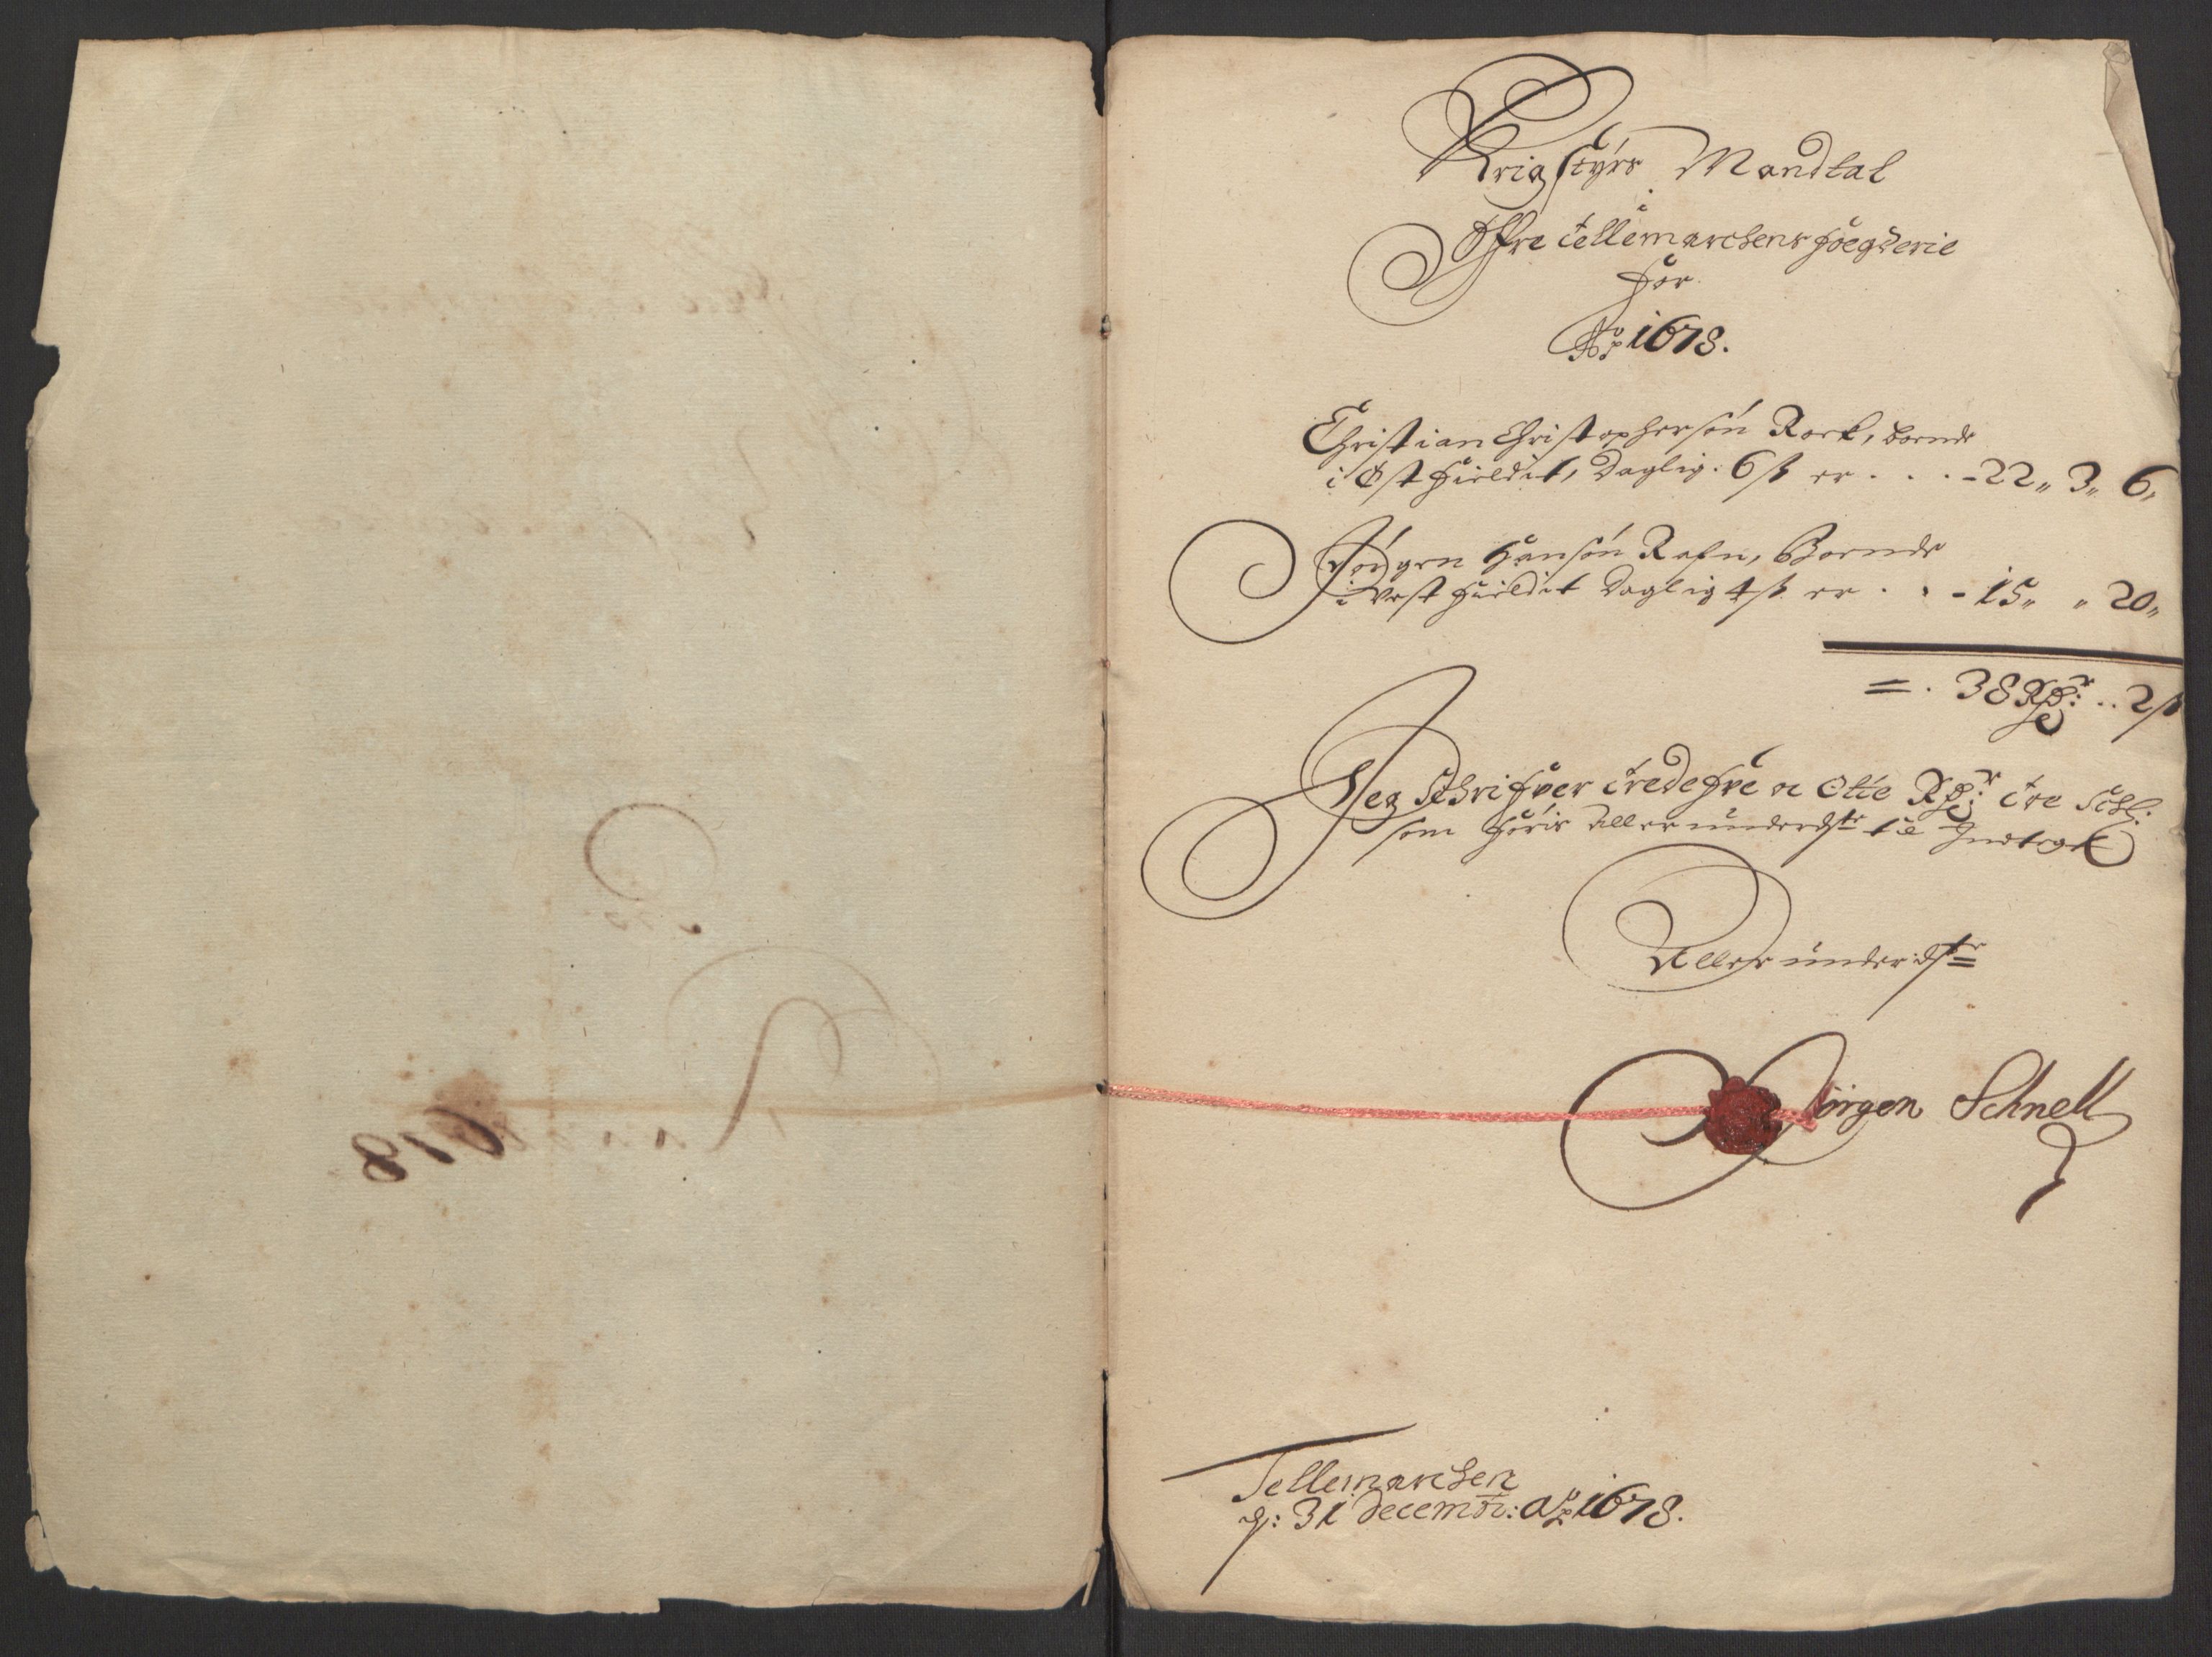 KrigStyrs Mandtal
i
Øfre Tellemarchens Foegderie
For
Ao 1678.
Christian Christophersøn Rock, boende
i Østfieldit, Daglig. 6 ß er . . . - 22 „ 3 „ 6 „
Jørgen Hansøn Rafn, Boende
i Vestfieldit Daglig 4 ß er . . - 15 „ „ 20 „
= . 38 Rdr: .. 2 ß
Jeg Schrifver Tredefve oc Otte Rdr: Tve Schl:
som føris Allerunderdste til Indtegt
Allerunderdste
Jørgen Schnell
Tellemarchen
d: 31 Decembr: Ao 1678.